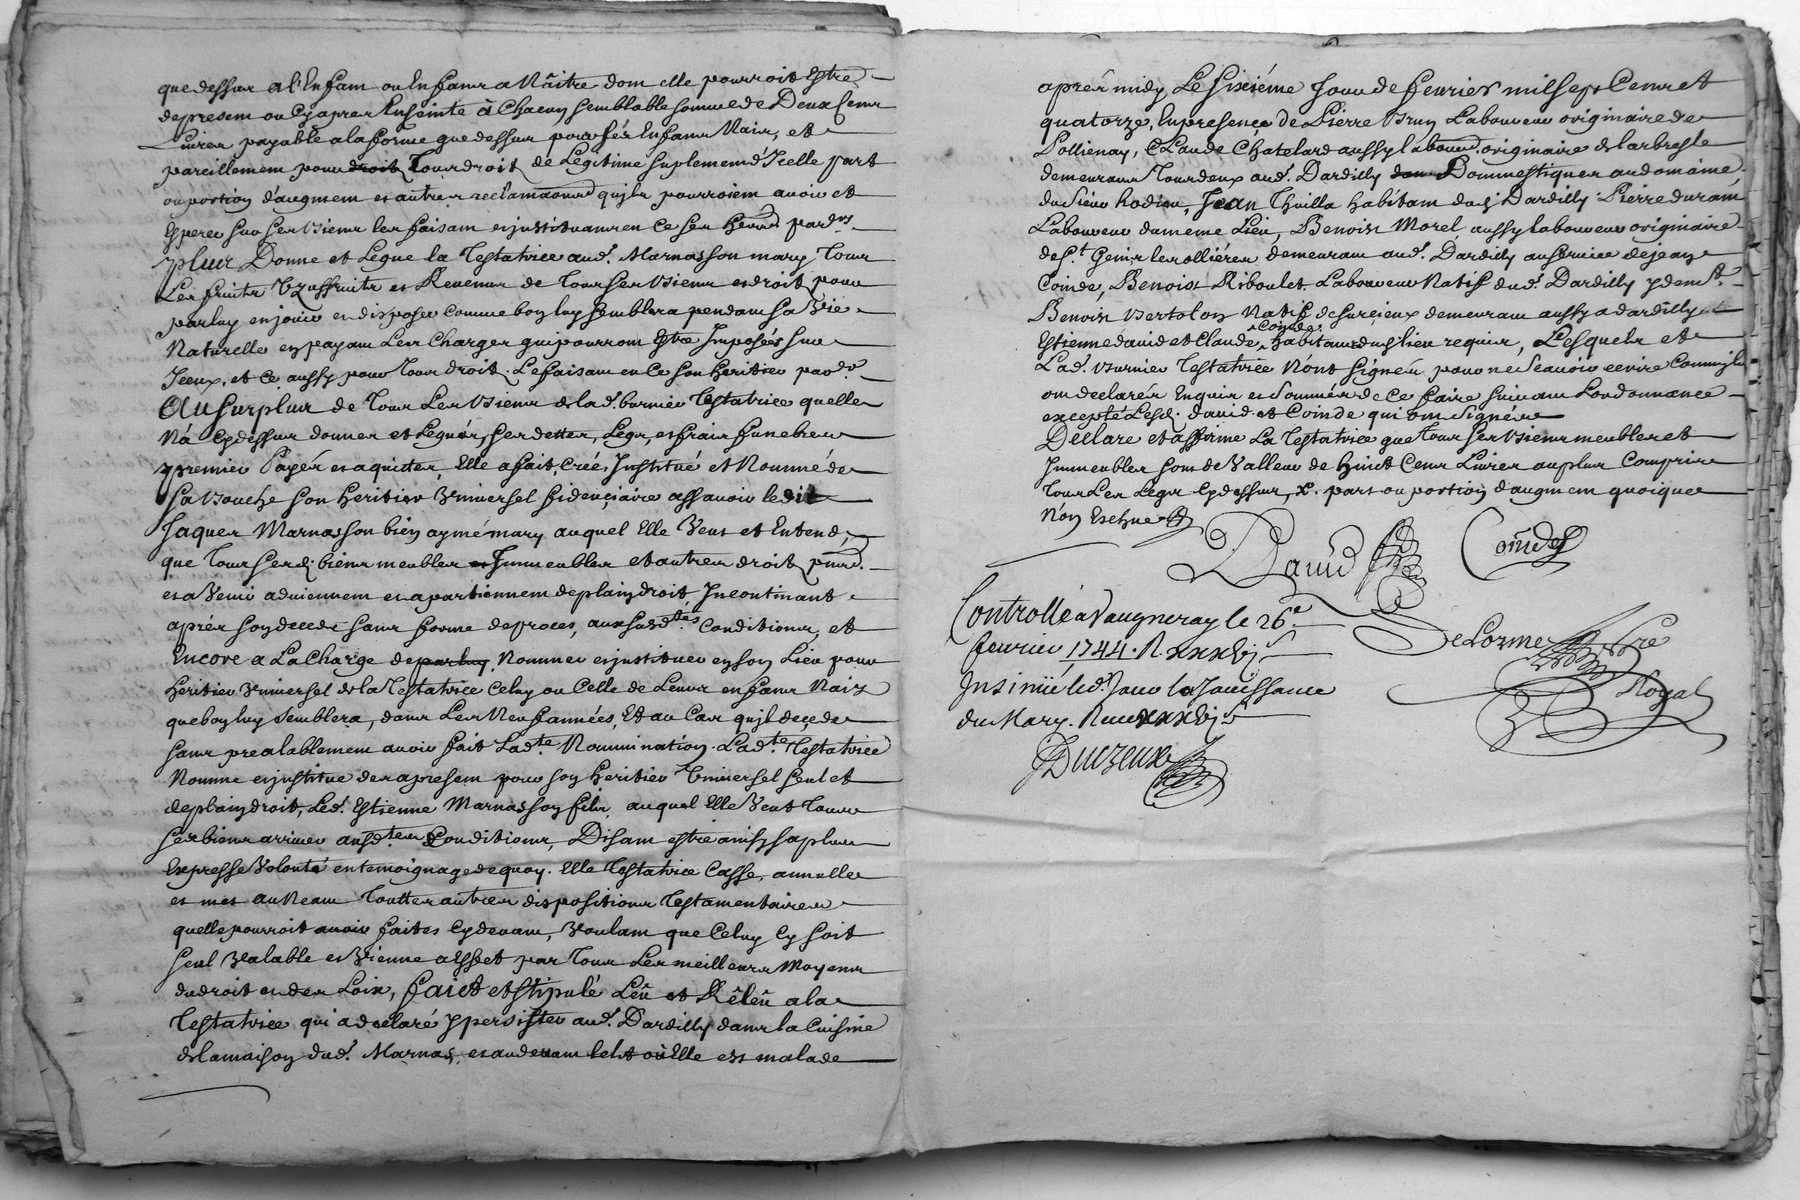 que dessus a l'Enfant ou Enfans a Naître dont elle pourroit Estre
de present ou Cy apres Enseinte à Chacun semblable somme de Deux Cens
Livres payable a la forme que dessus pour ses Enfans Nais, et
pareillement pour droit Tour droit de Legitime suplement d'Icelle part
ou portion d'augment et autres reclamaons quils pourroient avoir et
Esperer sur ses biens les faisant et instituants en ce ses heers par.ers
plus Donne et Legue la Testatrice aud. Marnasson mary Tous
Les fruits Uzuffruits et Revenus de Tous ses biens et droit pour
par luy en jouir et disposer comme bon luy semblera pendant sa Vie
Naturelle en payant Les Charges qui pourront Estre Imposées sur
Iceux, et ce aussy pour Tour droit. Le faisant en ce son heritier par.er
Au surplus de Tous Les biens de lad. burnier Testatrice quelle
N'a Cy dessus donnes et Legués, ses dettes, Legs, et frais funebres
premier Payés et aquittes, Elle a fait, Créé, Institué et Nommé de
sa bouche son heritier Universel fidenciaire assavoir ledit
Jaques Marnasson bien aymé mary auquel Elle Veut et Entend
que Tous sesd. biens meubles et Immeubles et autres droit pnts
et a Venir adviennent et apartiennent de plain droit Incontinant
après son deced sans forme de proces, aux susd.tes Conditions, et
Encore a La Charge de par luy Nommer et instituer en son Lieu pour
heritier Universel de la Testatrice Celuy ou Celle de Leurs enfans Nais
que bon luy semblera, dans Les Neuf années, Et au Cas quil decede
sans prealablement avoir fait Lad.te Nommination. Lad.te Testatrice
Nomme et institue des a present pour son heritier Universel seul et
de plain droit, Led. Estienne Marnasson fils, auquel Elle Veut Tous
ses biens arriver ausd.tes Conditions, Disant estre ainsy sa plus
Expresse Volonté en temoignage de quoy. Elle Testatrice Casse, annulle
et met au Neant Touttes autres dispositions Testamentaires
quelle pourroit avoir faites Cy devant, Voulant que Celuy Cy soit
seul Valable et Vienne a Effet par Tous Les meilleurs Moyens
du droit et des Loix, faict et stipulé Leû et Rêleû a la
Testatrice qui a declaré y persister aud. Dardilly dans la Cuisine
de la maison dud. Marnas. et au devant le lit où Elle est malade
aprés midy Le sixiéme Jour de fevrier mil sept Cens et
quatorze, En presence de Pierre brun Laboureur originaire de
Pollienay, Claude Chatelard aussy labour. originaire de larbresle
demeurans Tous deux aud. Dardilly Dommestiques au domaine
du sieur hodieu, Jean Thuilla habitant dud. Dardilly Pierre durand
Laboureur du meme Lieu, Benoist Morel aussy laboureur originaire
de s.t Genis les ollières demeurant aud. Dardilly au service de jean
Coinde, Benoist Riboulet Laboureur Natif dud. Dardilly y dem.t
Benoist bertolon Natif de surcieux demeurant aussy a dardilly
Estienne david et Claude Coinde habitans dud. lieu requis, Lesquels et
Lad. burnier Testatrice N'ont signés pour ne Scavoir ecrire Comme ils
ont declarés Enquis et sommés de Ce faire suivant Lordonnance
excepté Lesd. david et Coinde qui ont signés
Declare et affirme La Testatrice que Tous ses biens meubles et
Immeubles sont de Valleur de huict Cens Livres au plus Compris
Tous Les Legs Cy dessus, x. part ou portion d'augment quoique
Non Eschue
David
Coindes
Controllé a Vaugneray le 26.e
fevrier 1744. R xxxvj s
Insinué led. Jour la Jouissance
du Mary. R xxxvj s
Ducreux
Delorme N.re
Royal